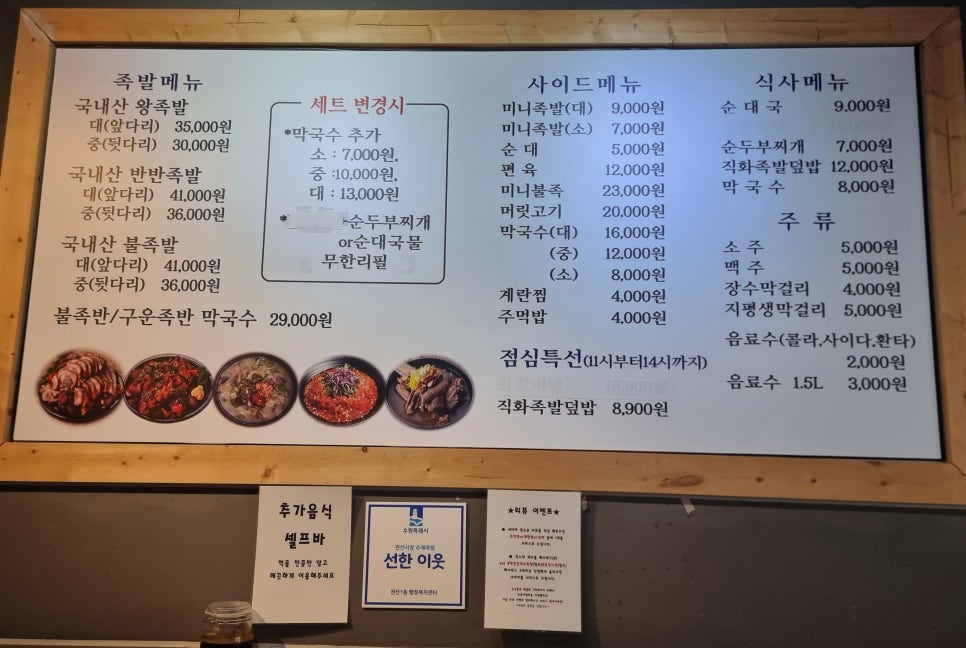 족발메뉴
국내산 왕족발
대(앞다리) 35,000원
중(뒷다리) 30,000원
국내산 반반족발
대(앞다리) 41,000원
중(뒷다리) 36,000원
국내산 불족발
대(앞다리) 41,000원
중(뒷다리) 36,000원
불족반/구운족반 막국수 29,000원
세트 변경시
*막국수 추가
소 : 7,000원,
중 :10,000원,
대 : 13,000원
* 순두부찌개
or순대국물
무한리필
사이드메뉴
미니족발(대) 9,000원
미니족발(소) 7,000원
순 대 5,000원
편 육 12,000원
미니불족 23,000원
머릿고기 20,000원
막국수(대) 16,000원
(중) 12,000원
(소) 8,000원
계란찜 4,000원
주먹밥 4,000원
점심특선(11시부터14시까지)
왕갈비탕 13,900원
직화족발덮밥 8,900원
식사메뉴
순 대 국 9,000원
순두부찌개 7,000원
직화족발덮밥 12,000원
막 국 수 8,000원
주 류
소 주 5,000원
맥 주 5,000원
장수막걸리 4,000원
지평생막걸리 5,000원
음료수(콜라,사이다,환타)
2,000원
음료수 1.5L 3,000원
추가음식
셀프바
먹을 만큼만 담고
깨끗하게 이용해주세요
수원특례시
권선시장 수제족발
선한 이웃
권선1동 행정복지센터
★리뷰 이벤트★